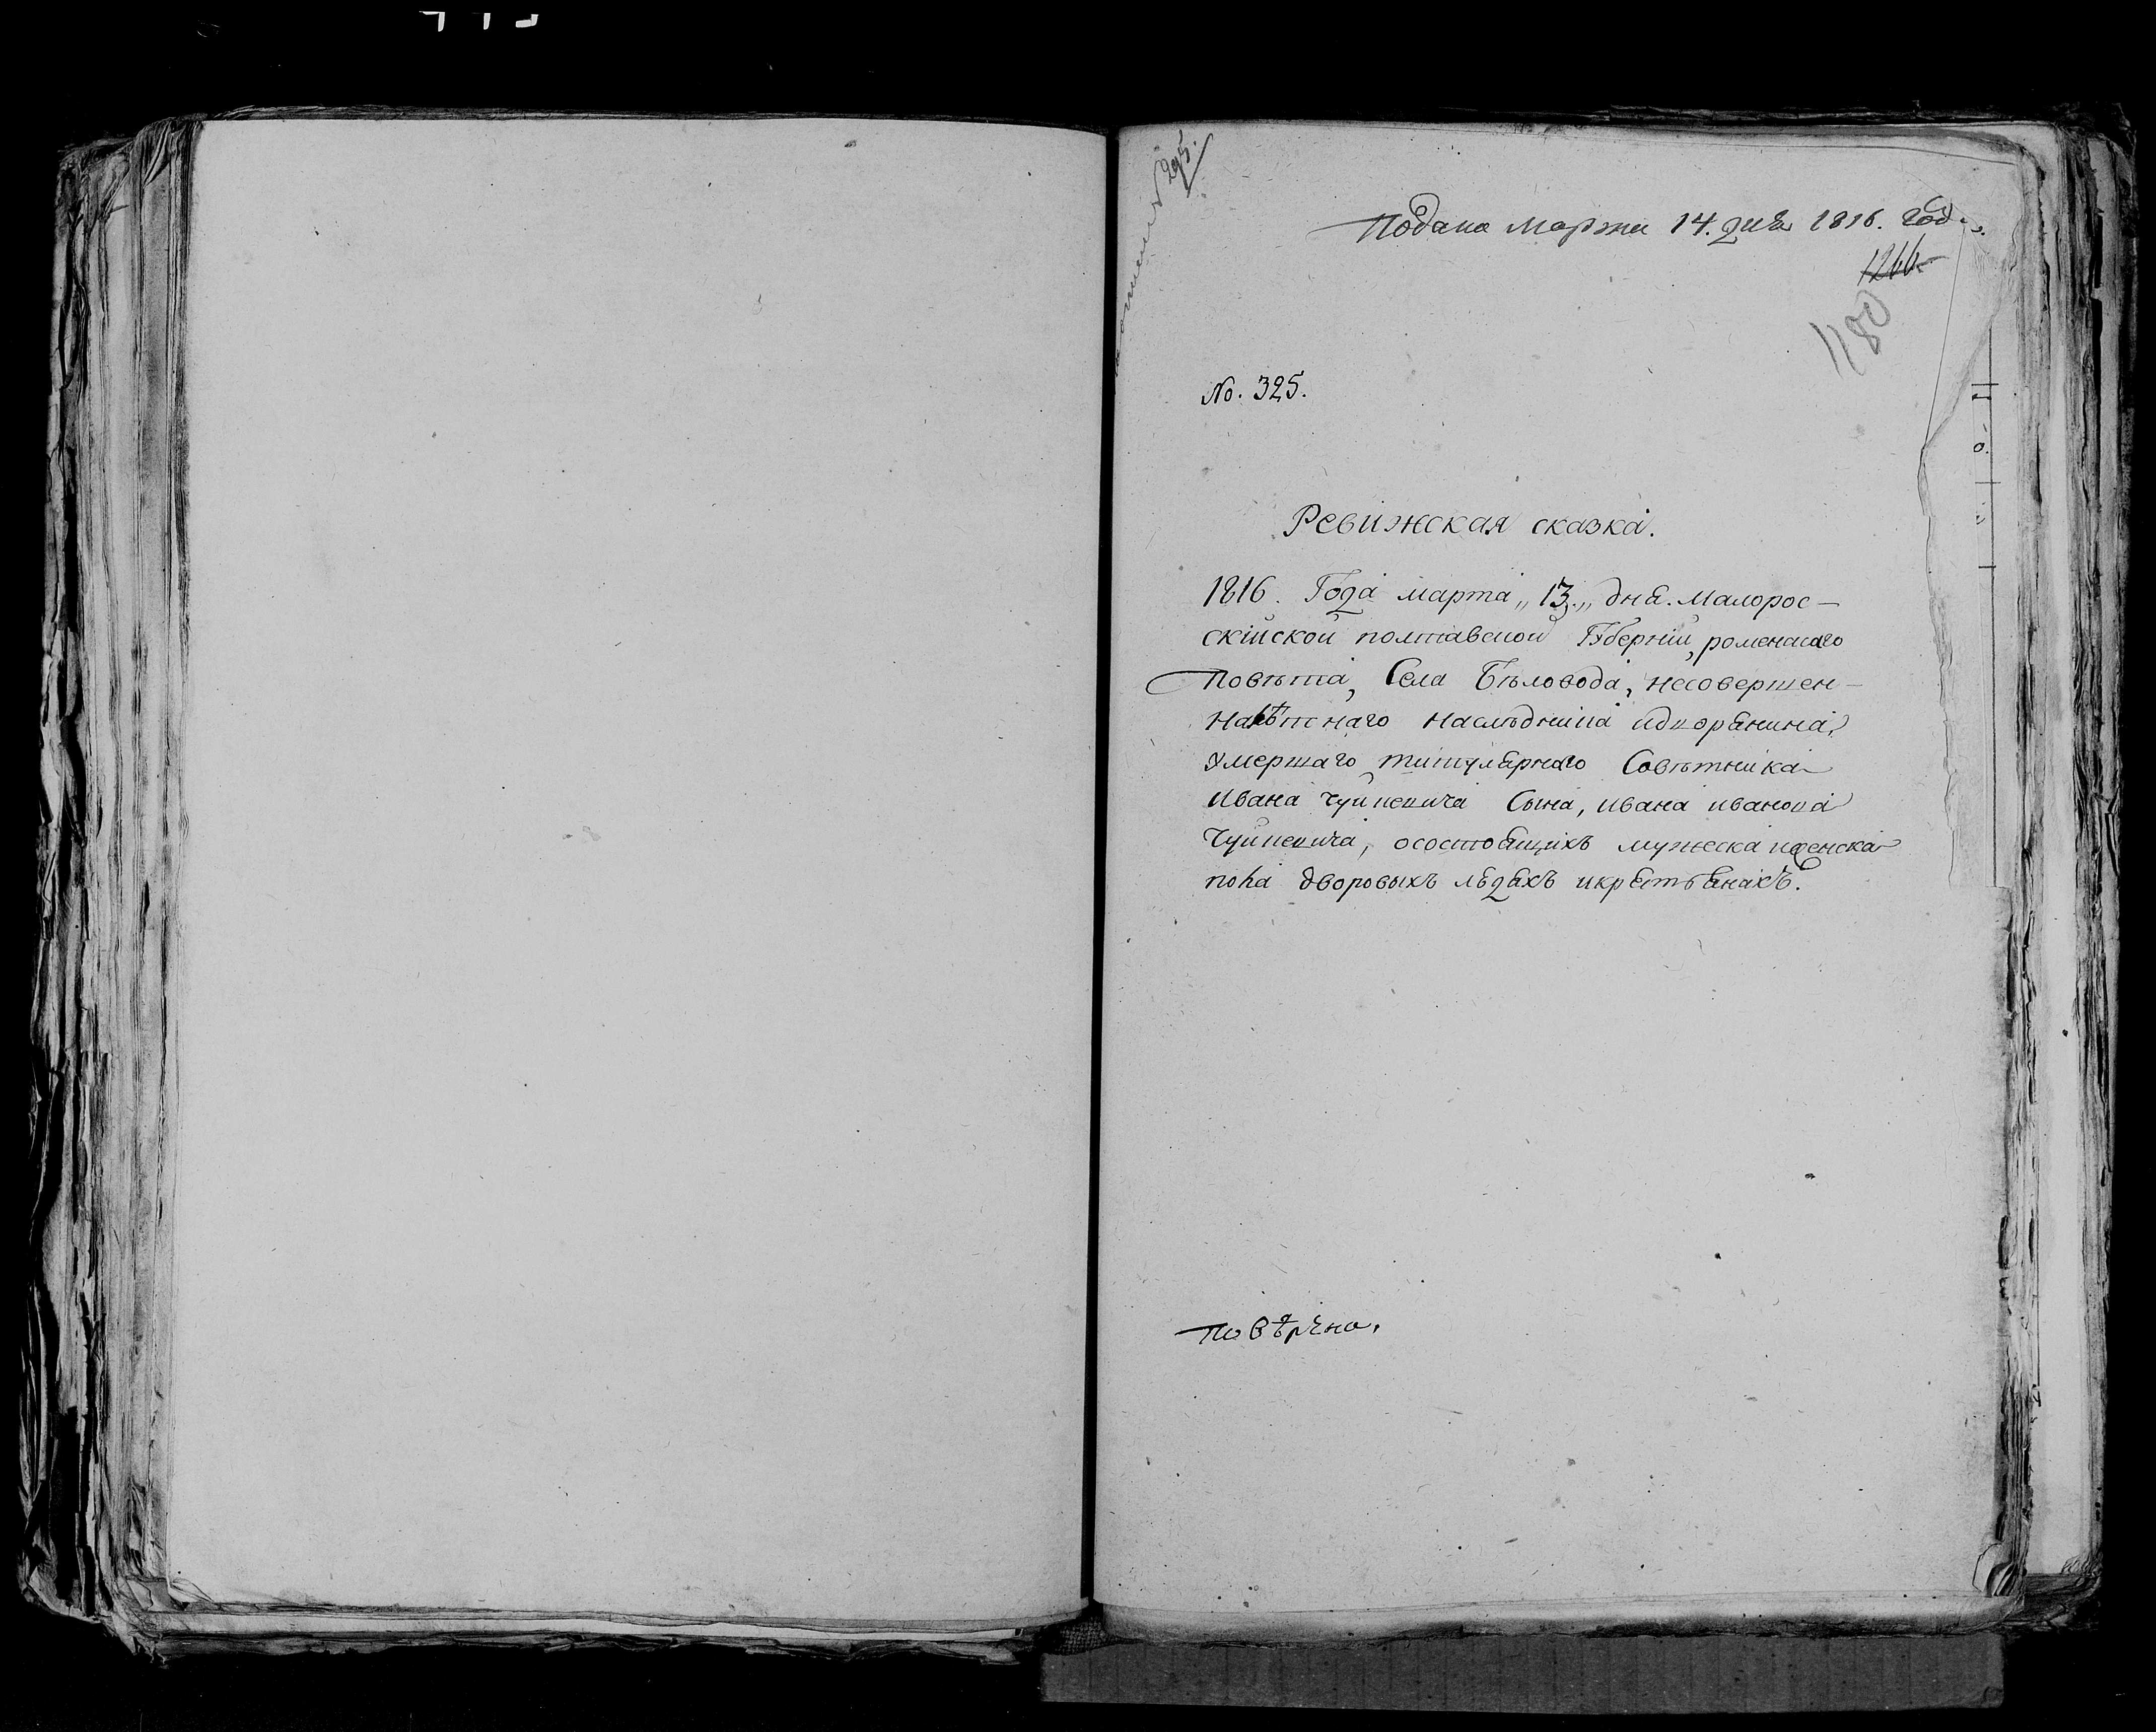 295.
Подана Марта 14. дня 1816. Год.
1266
1180
No. 325.
Ревижская сказка.
1816. Года марта „13„ дня. Малорос-
скійской полтавской Губерніи, роменскаго
Повѣта, Села Бѣловода, несовершен-
налѣтнаго наслѣдника идворянина,
умершаго титулярнаго Совѣтника
Ивана Чуйкевича Сына, ивана иванова
Чуйкевича, осостоящихъ мужеска иженска
пола дворовыхъ людяхъ икрестьянахъ.
повѣрено.